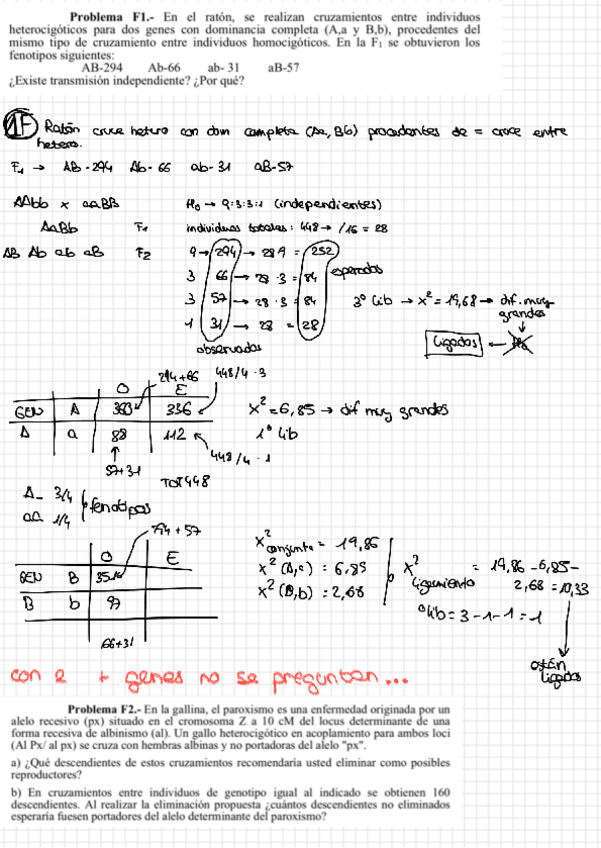 Problema F1.- En el ratón, se realizan cruzamientos entre individuos
heterocigóticos para dos genes con dominancia completa (A,a y B,b), procedentes del
mismo tipo de cruzamiento entre individuos homocigóticos. En la F₁ se obtuvieron los
fenotipos siguientes:
AB-294 Ab-66 ab- 31 aB-57
¿Existe transmisión independiente? ¿Por qué?
1F Ratón cruce hetero con dom completa (Aa, Bb) procedentes de = cruce entre
hetero.
F₁ → AB - 294 Ab - 66 ab - 31 aB-57
AAbb x aaBB H₀ → 9:3:3:1 (independientes)
AaBb F₁ individuos totales: 448 → /16 = 28
AB Ab ab aB F2 9 → 294 → 28·9 = 252
3 66 → 28·3 = 84 esperados
3 57 → 28·3 = 84 3º lib → x² = 19,68 → dif. muy
grandes
1 31 → 28 = 28
ligados ← H₀
observados
294+66 448/4 · 3
O E
GEN A 360 336 x² = 6,85 → dif muy grandes
A a 88 112 1º lib
448/4 · 1
57+31
TOT 448
A_ 3/4
aa 1/4
fenotipos
294 + 57
O E
GEN B 351
B b 97
66+31
x² conjunta = 19,86
x² (A,a) : 6,85
x² (B,b) : 2,68
x² ligamiento = 19,86 - 6,85 -
2,68 = 10,33
º lib = 3 - 1 - 1 = 1
están
ligados
con 2 + genes no se preguntan...
Problema F2.- En la gallina, el paroxismo es una enfermedad originada por un
alelo recesivo (px) situado en el cromosoma Z a 10 cM del locus determinante de una
forma recesiva de albinismo (al). Un gallo heterocigótico en acoplamiento para ambos loci
(Al Px/ al px) se cruza con hembras albinas y no portadoras del alelo "px".
a) ¿Qué descendientes de estos cruzamientos recomendaría usted eliminar como posibles
reproductores?
b) En cruzamientos entre individuos de genotipo igual al indicado se obtienen 160
descendientes. Al realizar la eliminación propuesta ¿cuántos descendientes no eliminados
esperaría fuesen portadores del alelo determinante del paroxismo?